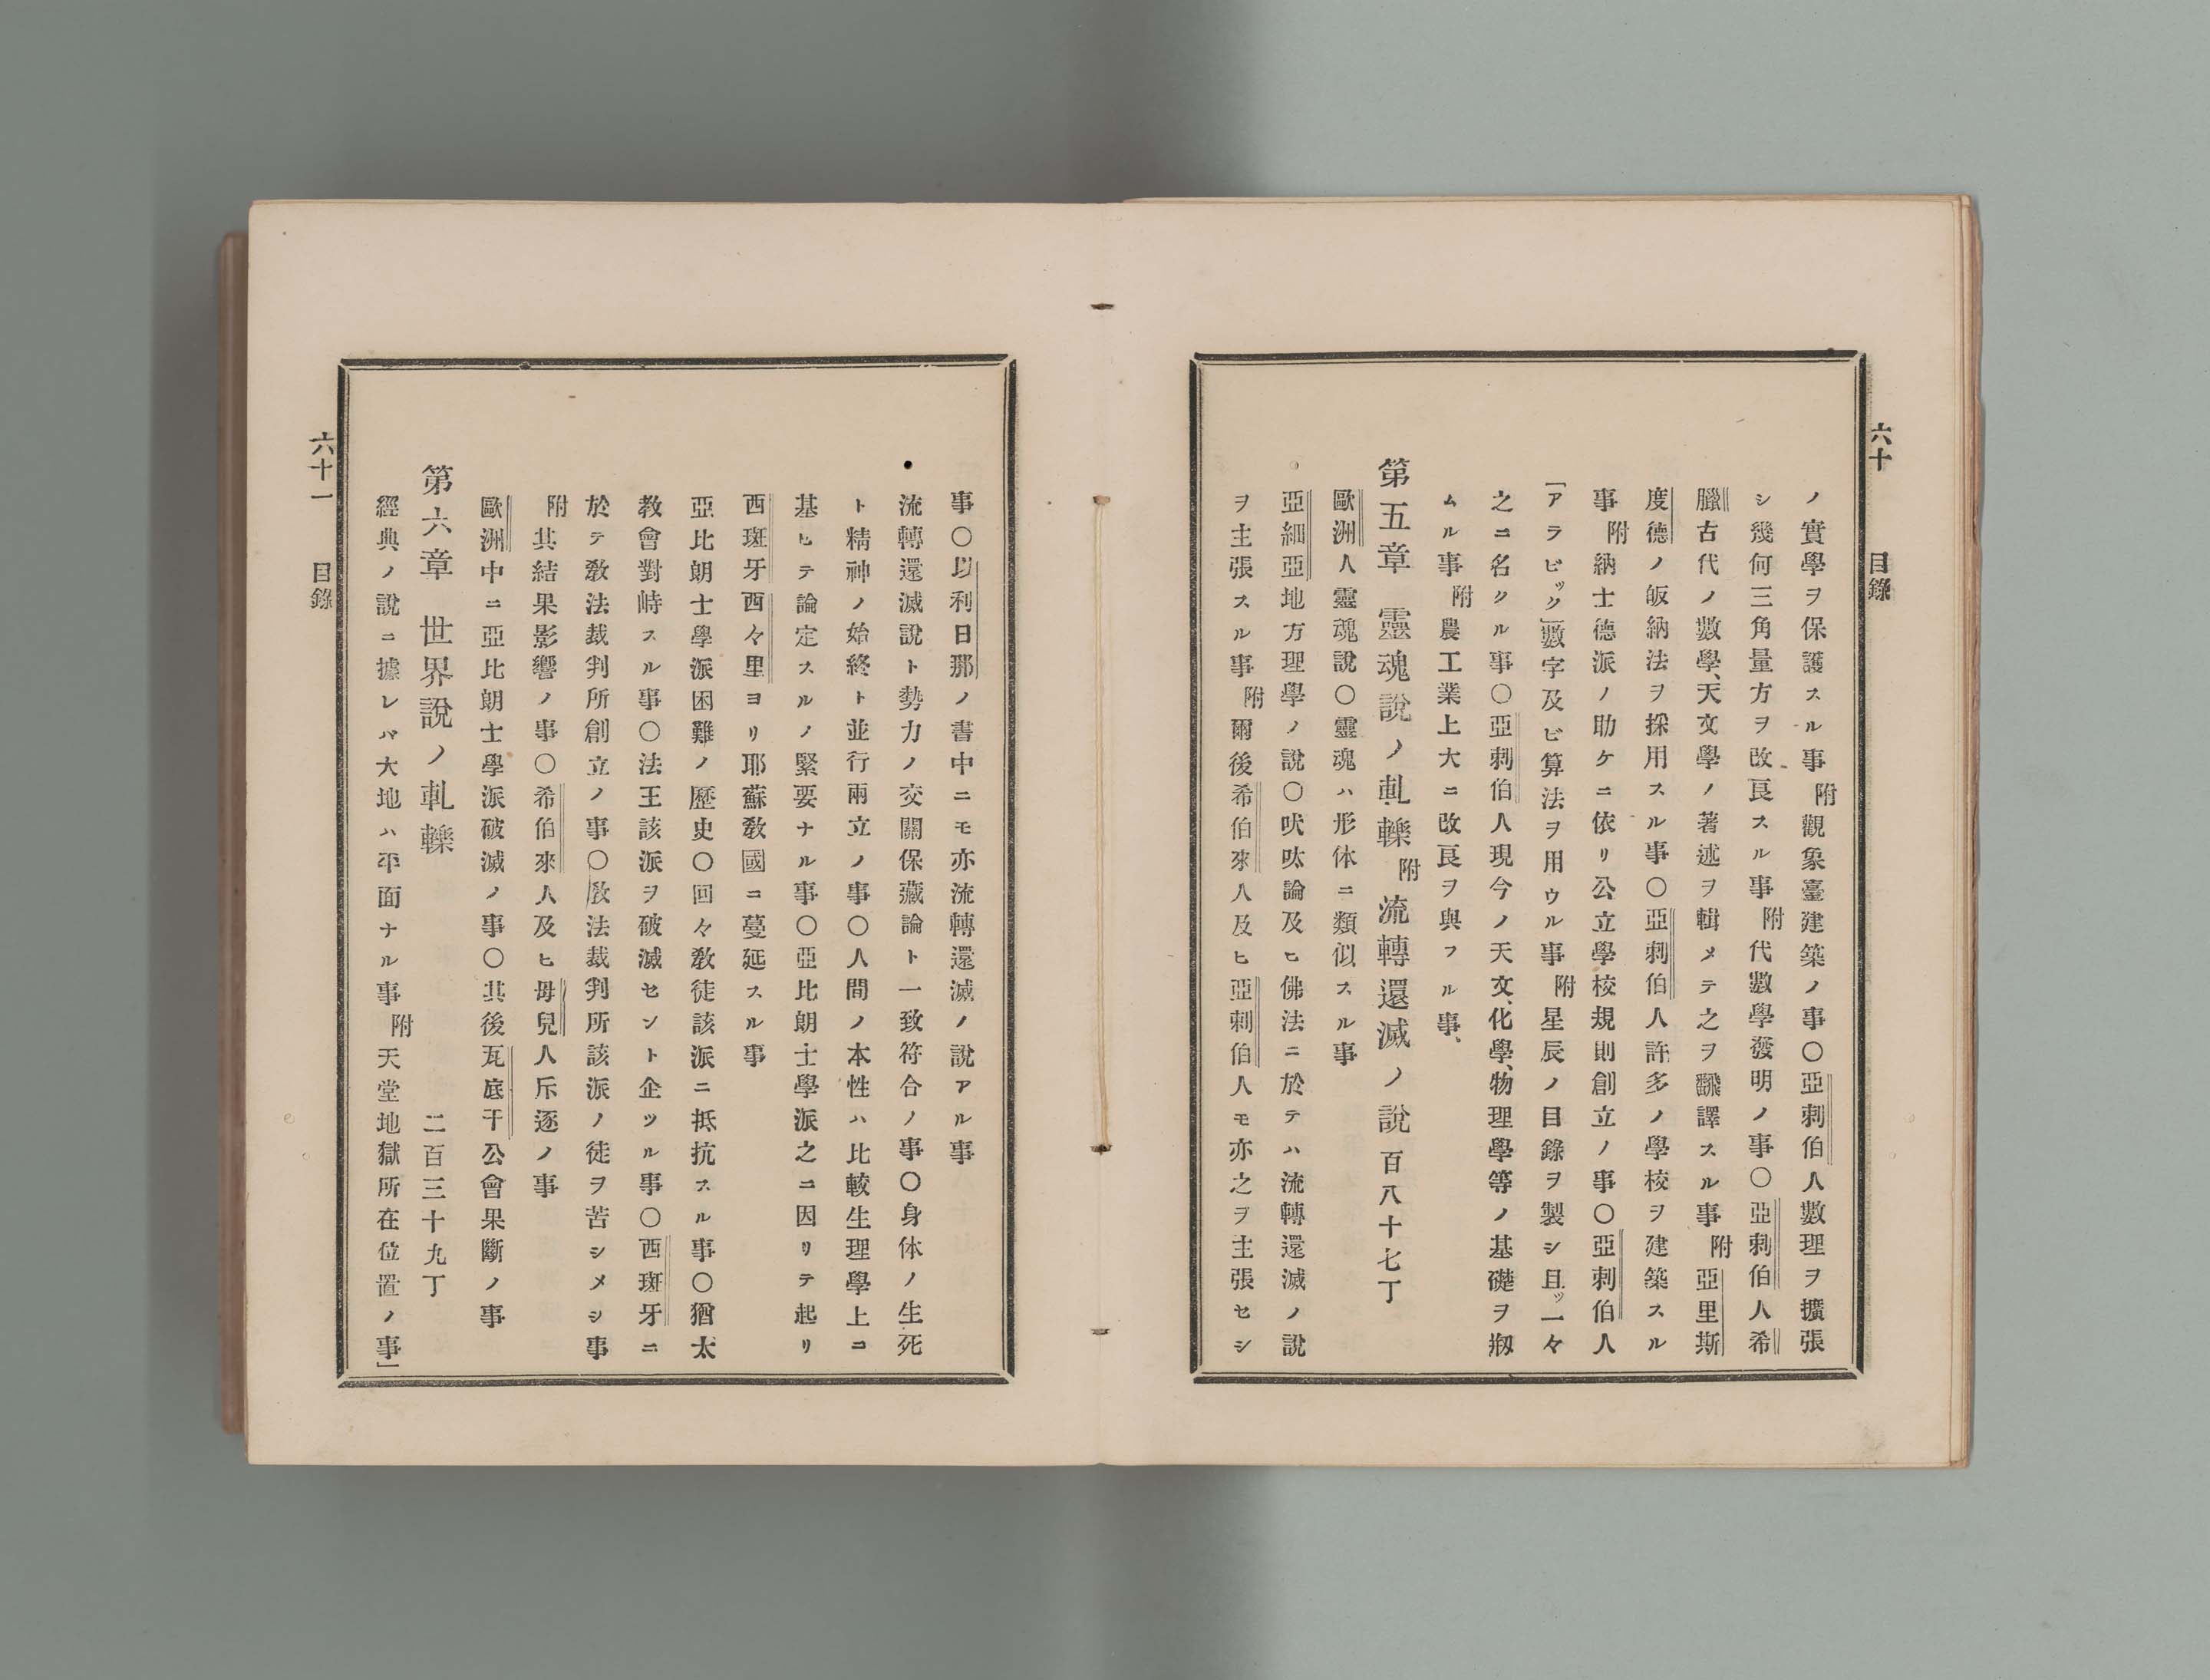 六十　目錄
ノ實學ヲ保護スル事附觀象臺建築ノ事〇亞刺伯人數理ヲ擴張
シ幾何三角量方ヲ改良スル事附代數學發明ノ事〇亞刺伯人希
臘古代ノ數學、天文學ノ著述ヲ輯メテ之ヲ飜譯スル事附亞里斯
度德ノ皈納法ヲ採用スル事〇亞刺伯人許多ノ學校ヲ建築スル
事附納士德派ノ助ケニ依リ公立學校規則創立ノ事〇亞刺伯人
「アラビック」數字及ビ算法ヲ用ウル事附星辰ノ目錄ヲ製シ且ッ一々
之ニ名クル事〇亞刺伯人現今ノ天文、化學、物理學等ノ基礎ヲ剏
ムル事附農工業上大ニ改良ヲ與フル事、
第五章　靈魂說ノ軋轢附流轉還滅ノ說　百八十七丁
歐洲人靈魂說〇靈魂ハ形体ニ類似スル事
亞細亞地方理學ノ說〇吠呔論及ヒ佛法ニ於テハ流轉還滅ノ說
ヲ主張スル事附爾後希伯來人及ヒ亞刺伯人モ亦之ヲ主張セシ
事〇以利日那ノ書中ニモ亦流轉還滅ノ說アル事
流轉還滅說ト勢力ノ交關保藏論ト一致符合ノ事〇身体ノ生死
ト精神ノ始終ト並行兩立ノ事〇人間ノ本性ハ比較生理學上コ
基ヒテ論定スルノ緊要ナル事〇亞比朗士學派之ニ因リテ起リ
西斑牙西々里ヨリ耶蘇敎國コ蔓延スル事
亞比朗士學派困難ノ歷史〇回々敎徒該派ニ抵抗スル事〇猶太
敎會對峙スル事〇法王該派ヲ破滅セント企ツル事〇西斑牙ニ
於テ敎法裁判所創立ノ事〇敎法裁判所該派ノ徒ヲ苦シメシ事
附其結果影響ノ事〇希伯來人及ヒ毋兒人斥逐ノ事
歐洲中ニ亞比朗士學派破滅ノ事〇其後瓦底干公會果斷ノ事
第六章　世界說ノ軋轢　二百三十九丁
經典ノ說ニ據レバ大地ハ平面ナル事附天堂地獄所在位置ノ事」
六十一　目錄